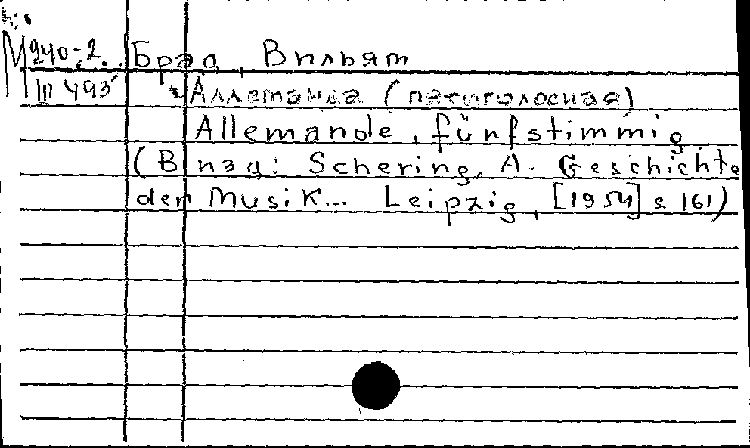 М 240-2. Брад, Вильям
III 493 Аллеманда (пятиголосная)
Allemande, fünfstimmig
(В изд: Schering, A. Geschichte
der Musik... Leipzig, [1954] s 161)